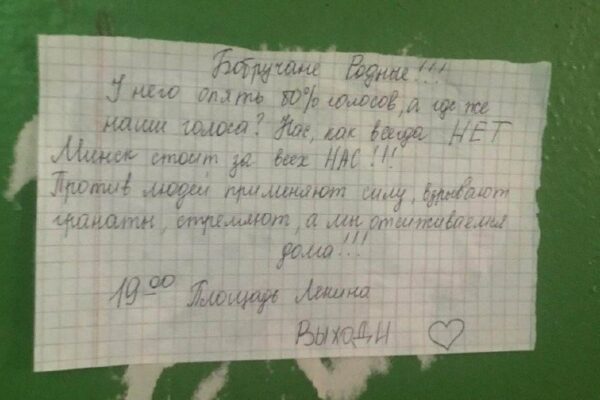 Бобручане Родные!!!
У него опять 80% голосов, а где же
наши голоса? Нас, как всегда НЕТ
Минск стоит за всех НАС!!!
Против людей применяют силу, взрывают
гранаты, стреляют, а мы отсиживаемся
дома!!!
19-00 Площадь Ленина
ВЫХОДИ ♡